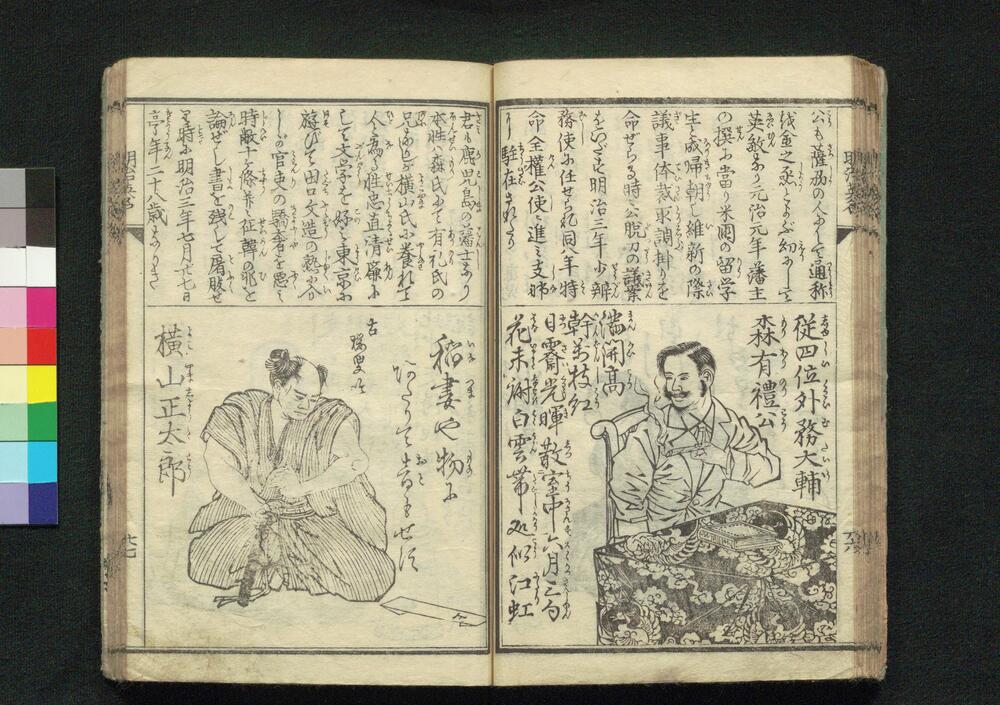 公も薩州の人にして通称
英敏なり元治元年藩主
の撰に当り米国の留学
生と成帰朝し維新の際
議事体裁取調掛りを
命ぜらる時に公脱刀の議案
明治三年少辨
務使に任せられ同八年特
命全權公使に進ミ支那
駐在されたり
従四位外務大輔
森有禮公
満開高
幹萬枝紅
日霽光暉散室中六月三旬
花未謝白雲帯処似江虹
君も鹿児島の藩士なり
本姓ハ森氏にて有礼氏の
兄なり横山氏に養れて
人と為り性忠直清廉に
して文学を好ミ東京に
遊びて田口文造の塾に
しが官吏の驕奢を悪ミ
時敝十ヶ條并に征韓の非を
論ぜし書を残して屠腹せ
り時に明治三年七月廿七日
享年二十八歳なりき
稲妻や物に
あたりて音もせず
横山正太郎